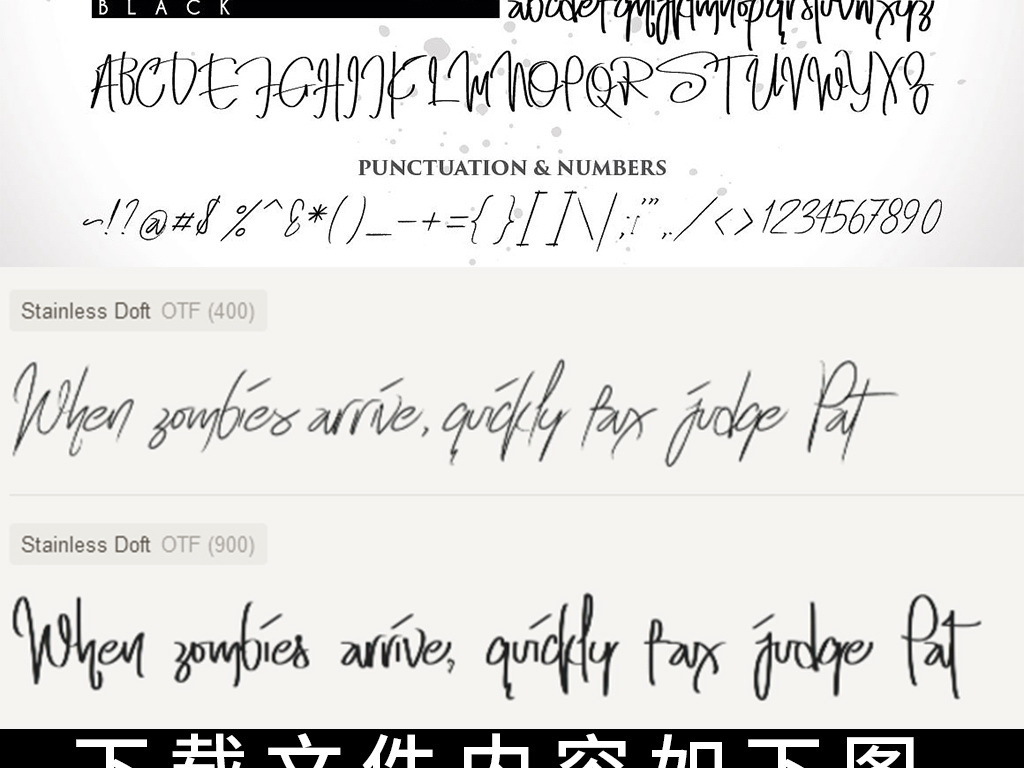 BLACK
abcdefghijklmnopqrstuvwxyz
ABCDEFGHIJKLMNOPQRSTUVWYXZ
PUNCTUATION & NUMBERS
~!?@#$%^&*()_-+={}[]\|;:'"",./<>1234567890
Stainless Doft OTF (400)
When zombies arrive, quickly fax judge Pat
Stainless Doft OTF (900)
When zombies arrive, quickly fax judge Pat
下载文件内容如下图